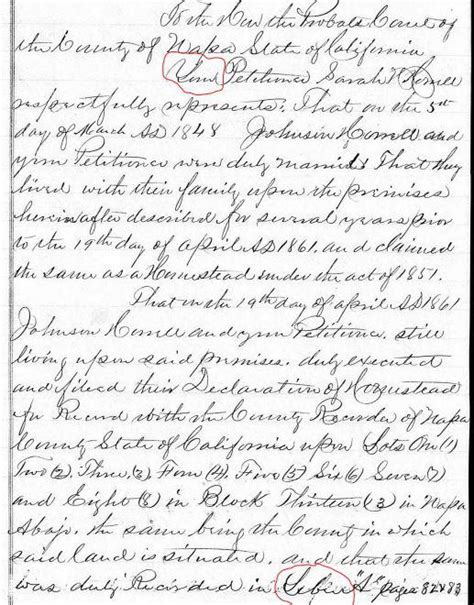 To the Hon the Probate Court of
the County of Napa State of California
Your Petitioner Sarah Horrell
respectfully represents: That on the 5th
day of March AD 1848 Johnson Horrell and
your Petitioner were duly married: That they
lived with their family upon the premises
hereinafter described for several years prior
to the 19th day of April AD 1861. and claimed
the same as a Homestead under the act of 1851.
That on the 19th day of April AD 1861
Johnson Horrell and your Petitioner. still
living upon said premises. duly executed
and filed their Declaration of Homestead
for Record with the County Recorder of Napa
County State of California upon Lots One (1)
Two (2) Three (3) Four (4) Five (5) Six (6) Seven (7)
and Eight (8) in Block Thirteen (13) in Napa
Abajo. the same being the County in which
said land is situated. and that the same
was duly Recorded in Liber "A" pages 82 & 83